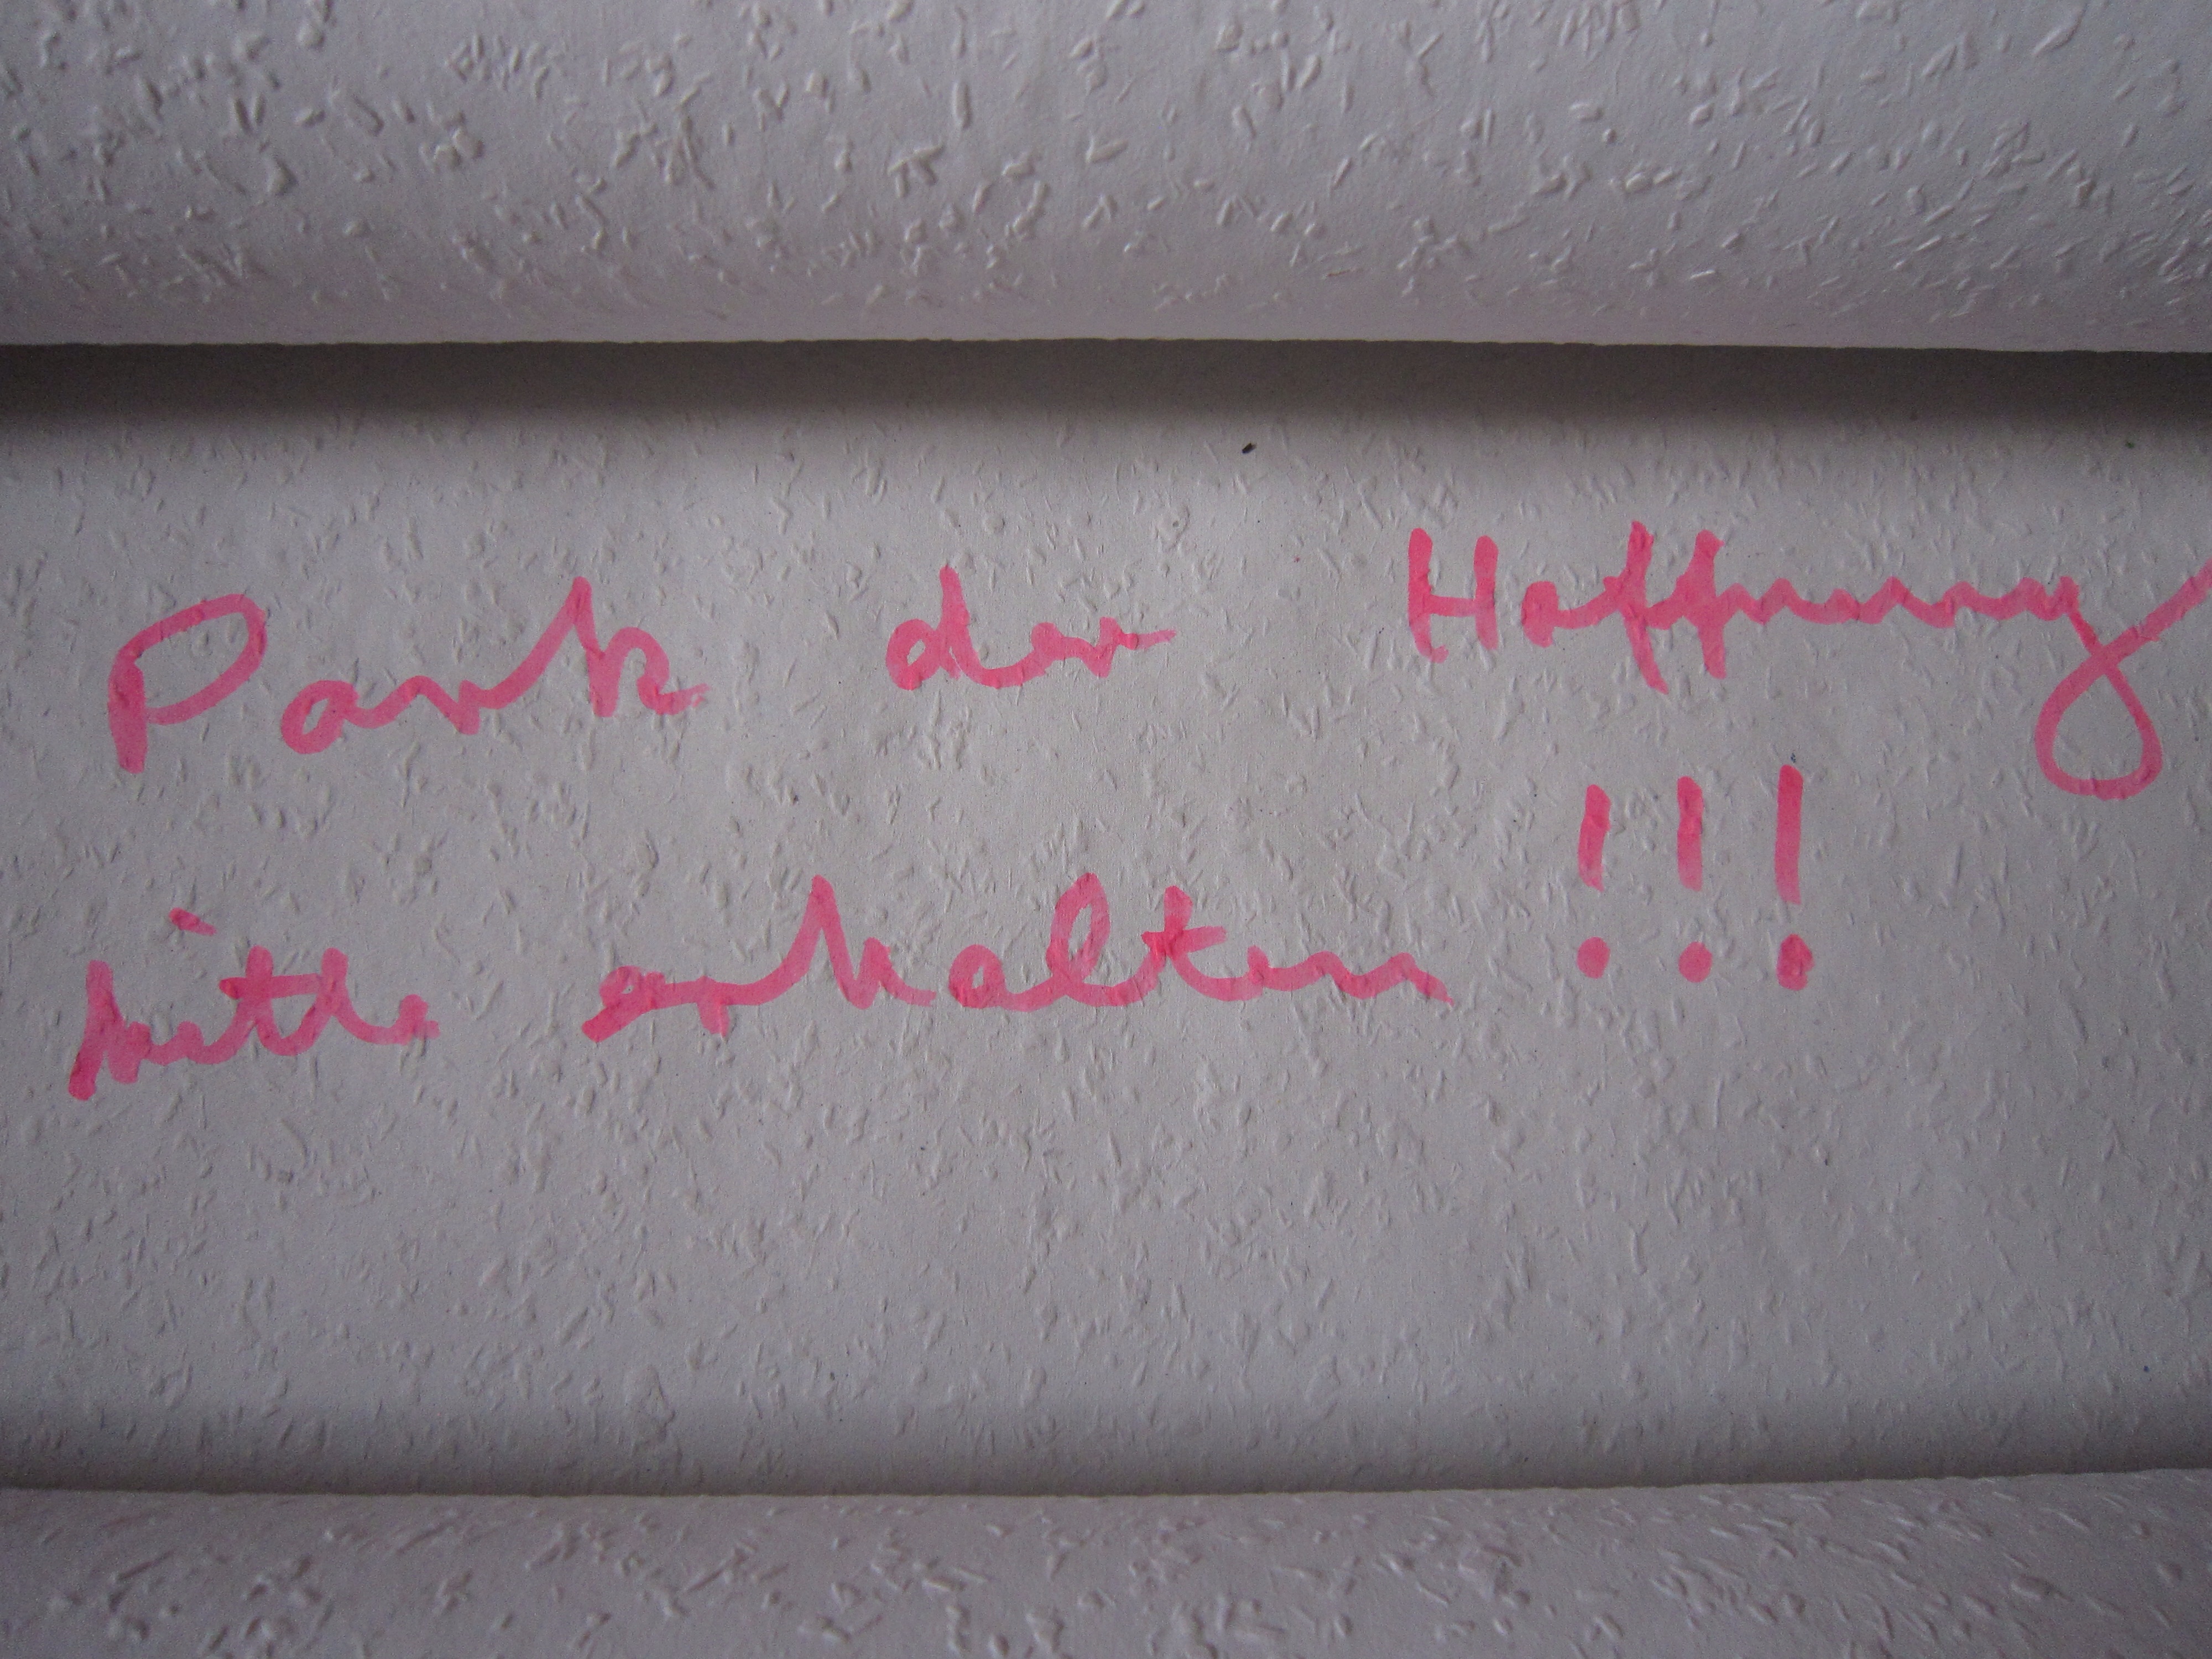 Park der Hoffnung
bitte erhalten !!!